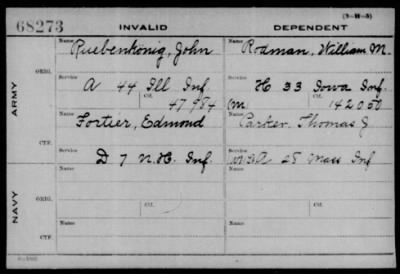 (3-H-5)
68273 INVALID DEPENDENT
Name Name
Ruebenkönig, John Rodman, William M.
ORIG.
Service Service
A 44 Ill Inf. H 33 Iowa Inf.
Ctf. Ctf.
47984 (m) 142050
ARMY
Name Name
Fortier, Edmond Parker. Thomas J
CTF.
Service Service
D 7 N.H. Inf. 25 Mass Inf
Name Name
ORIG.
Service Ctf. Service Ctf.
NAVY
Name Name
CTF.
Service Service